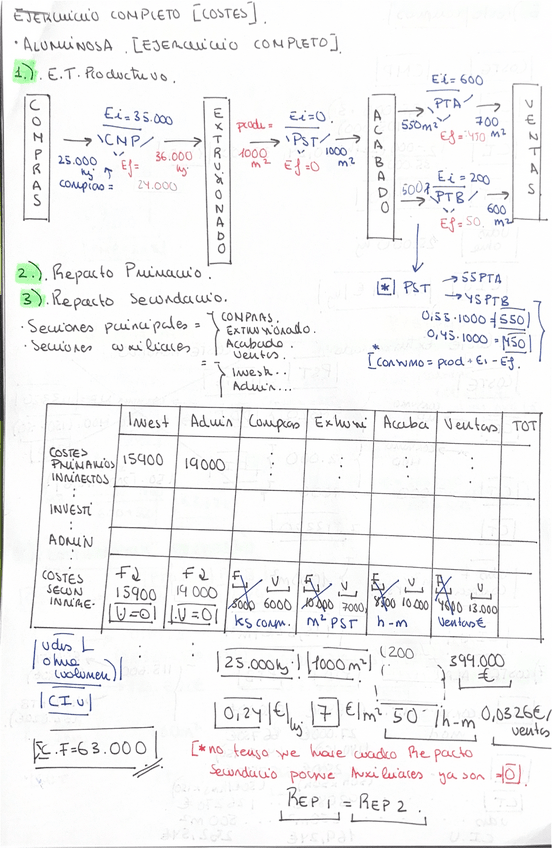 EJERCIICIO COMPLETO [COSTES]
· ALUMINOSA [EJERCIICIO COMPLETO].
1.). E.T. Productivo.
COMPRAS
25.000 kg
compras = 24.000
Ei=35.000
CMP
Ef=
36.000 kg.
EXTRUXIONADO
prode =
1000 m²
Ei=0.
PST
Ef=0
1000 m²
ACABADO
Ei=600
PTA
550m²
Ef=450
700 m²
Ei=200
PTB
500
Ef=50.
600 m²
VENTAS
[*] PST → 55PTA
→ 45PTB
0,55·1000=550
0,45·1000=450
*[Consumo = prod + Ei - Ef.
2.). Repacto Primario.
3). Repacto Secundario.
· Seciones principales = COMPRAS.
EXTRUXIONADO.
Acabado.
Ventas.
· Seciones auxiliares = Invest..
Admin...
Invest Admin Compras Extruxi Acaba Ventas TOT
COSTES PRIMARIOS INDIRECTOS 15900 19000
INVESTI
ADMIN
COSTES SECUN INDIRE. F↓ 15900 U=0 F↓ 19000 U=0 F 5000 U 6000 F 10.000 U 7000 F 8500 U 10.000 F 4600 U 13.000
KS conm. m² PST h-m Ventas€
Udes L ohra (volumen) 25.000kg. 1000 m² 200 399.000 €
CIU 0,24 €/kg 7 €/m² 50 /h-m 0,0326€/ventas
Σ C.F=63.000
[*no tengo que hacer cuadro Repacto
Secundario porque Auxiliares ya son =0
REP 1 = REP 2.